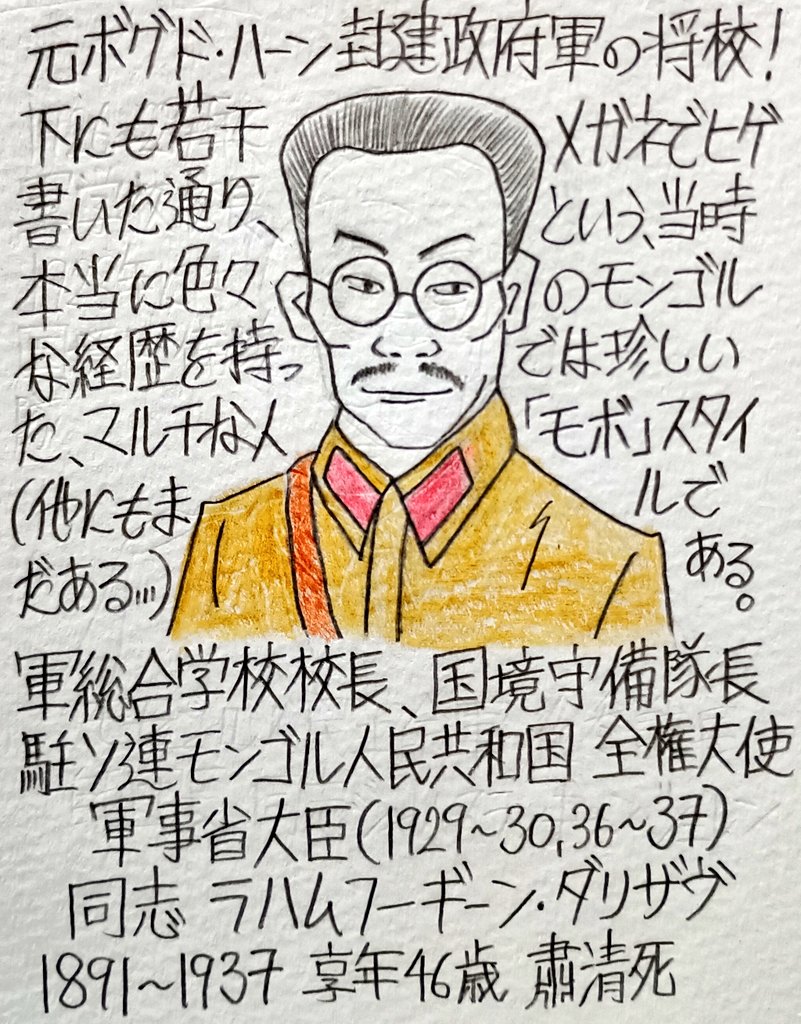 元ボグド・ハーン封建政府軍の将校!
下にも若干
書いた通り、
本当に色々
な経歴を持っ
た、マルチな人
(他にもま
だある...)
メガネでヒゲ
という、当時
のモンゴル
では珍しい
「モボ」スタイ
ルで
ある。
軍総合学校校長、国境守備隊長
駐ソ連モンゴル人民共和国 全権大使
軍事省大臣(1929~30,36~37)
同志 ラハムフーギーン・ダリザヴ
1891~1937 享年46歳 肅清死